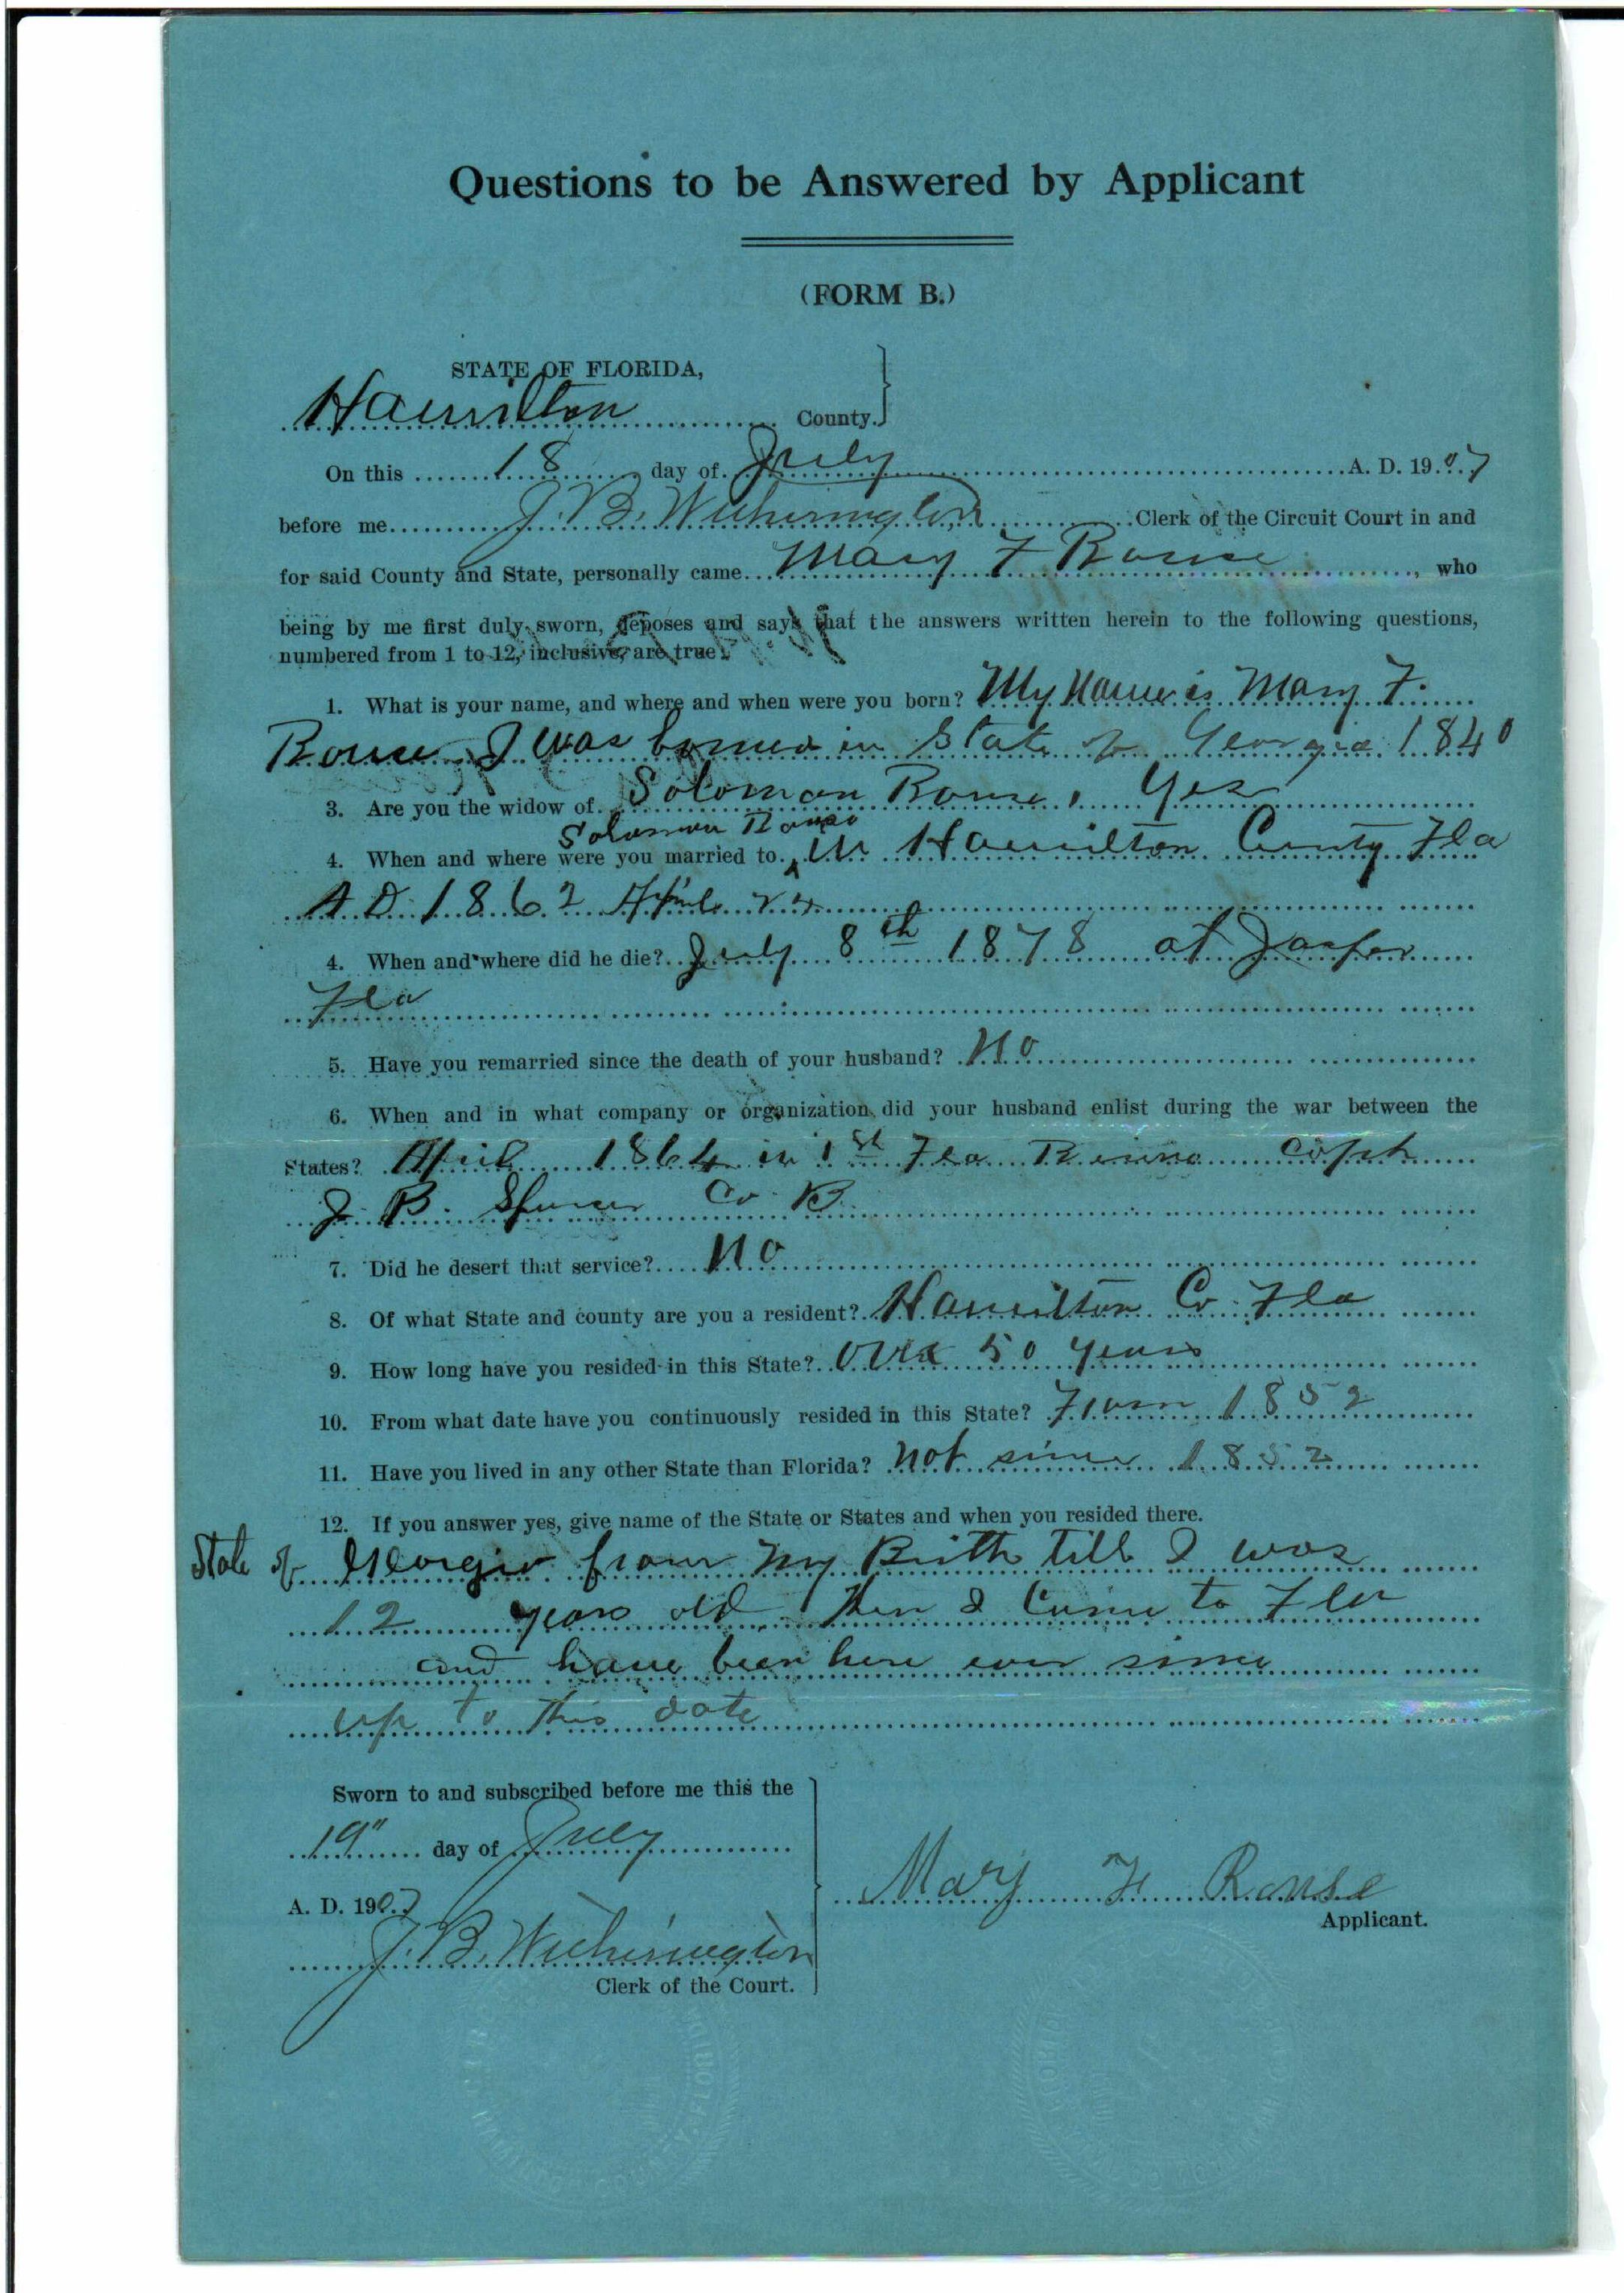 Questions to be Answered by Applicant
(FORM B.)
STATE OF FLORIDA,
Hamilton County.
On this 18 day of July A. D. 1907
before me J. B. Witherington Clerk of the Circuit Court in and
for said County and State, personally came Mary F Rouse, who
being by me first duly sworn, deposes and says that the answers written herein to the following questions,
numbered from 1 to 12, inclusive, are true.
1. What is your name, and where and when were you born? My Name is Mary F.
Rouse I was borned in State of Georgia 1840
3. Are you the widow of Soloman Rouse, Yes
Soloman Rouse
4. When and where were you married to in Hamilton County Fla
A D 1862 April 24
4. When and where did he die? July 8th 1878 at Jasper
Fla
5. Have you remarried since the death of your husband? No
6. When and in what company or organization did your husband enlist during the war between the
States? April 1864 in 1st Fla
J. B. Co B
7. Did he desert that service? No
8. Of what State and county are you a resident? Hamilton Co Fla
9. How long have you resided in this State? Over 50 years
10. From what date have you continuously resided in this State? From 1852
11. Have you lived in any other State than Florida? Not since 1852
12. If you answer yes, give name of the State or States and when you resided there.
State of Georgia from My Birth till I was
12 years old then I Came to Fla
and have been here ever since
up to this date
Sworn to and subscribed before me this the
19" day of July
A. D. 1907
Mary F Rouse
Applicant.
J. B. Witherington
Clerk of the Court.